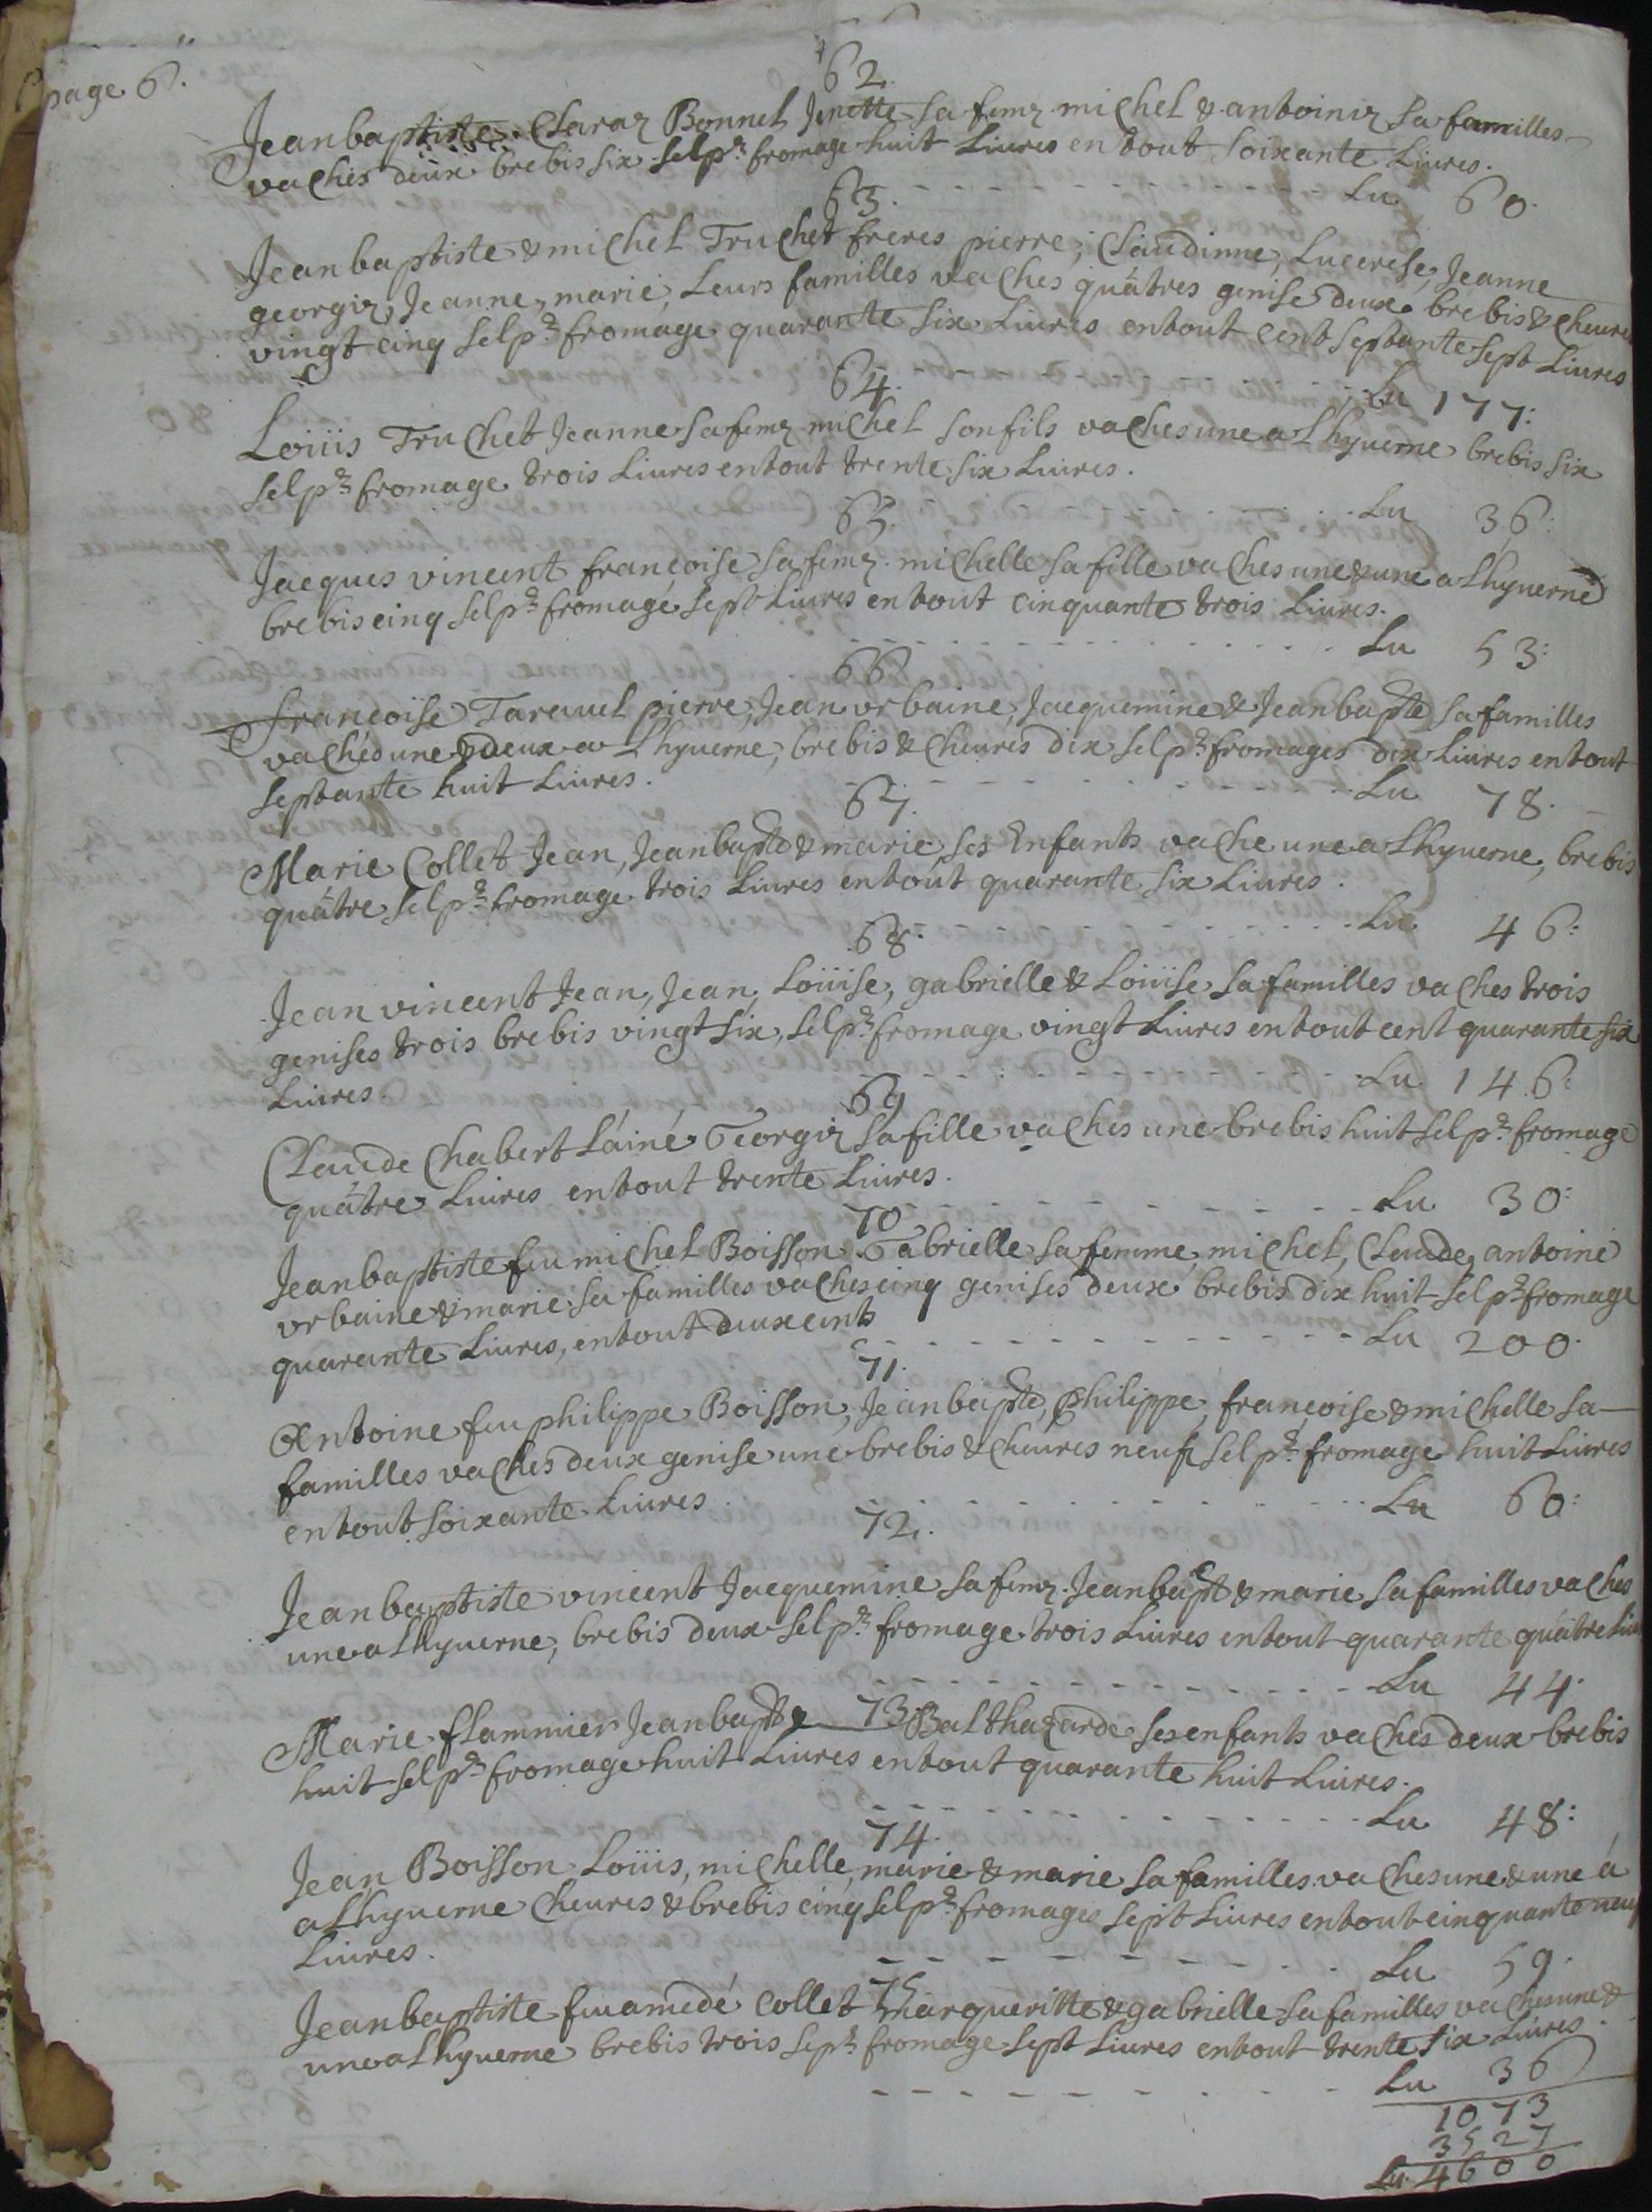 page 6.
62
Jeanbaptiste Claraz Bonnel Jenette sa femz michel & antoiniz sa familles
vaches deux brebis six selpr fromage huit Liures en tout soixante Liures.
Lu 60.
63.
Jeanbaptiste & michel Truchet freres pierre, Claudinne, Lucerese, Jeanne
georgiz, Jeanne, marie, Leurs familles vaches quâtres genise deux brebis & cheures
vingt cinq selpr fromage quarante six Liures entout cent septante sept Liures
Lu 177:
64.
Loüis Truchet Jeanne sa femz michel son fils vaches une a Lhyuerne brebis six
selpr fromage trois Liures entout trente six Liures.
Lu 36:
65.
Jacques vincent francoise sa femz michelle sa fille vaches une & une a Lhyuerne
brebis cinq selpr fromage sept Liures entout cinquante trois Liures.
Lu 53:
66
francoise Tarauel pierre, Jean vrbaine, Jacquemine & Jeanbapte sa familles
vaches une & deux a Lhyuerne, brebis & cheures dix selpr fromages dix Liures entout
septante huit Liures.
Lu 78.
67.
Marie Collet Jean, Jeanbapte & marie ses Enfants vache une a Lhyuerne, brebis
quâtre selpr fromage trois Liures entout quarante six Liures.
Lu. 46:
68.
Jean vincent Jean, Jean, Loüise, gabrielle & Loüise sa familles vaches trois
genises trois brebis vingt six, selpr fromage vingt Liures entout cent quarante six
Liures.
Lu 146:
69
Claude Chabert L'áiné Georgiz sa fille vaches une brebis huit selpr fromage
quâtre Liures entout trente Liures.
Lu 30:
70
Jeanbaptiste feu michel Boisson Gabrielle sa femme, michel, Claude, antoine
vrbaine & marie sa familles vaches cinq genises deux brebis dix huit selpr fromage
quarante Liures, entout deux cents
Lu 200.
71.
Antoine feu philippe Boisson, Jeanbapte, Philippe, francoise & michelle sa
familles vaches deux genise une brebis & cheures neuf selpr fromage huit Liures
entout soixante Liures.
Lu 60:
72.
Jeanbaptiste vincent Jacquemine sa femz. Jeanbapt & marie sa familles vaches
une a Lhyuerne, brebis deux selpr fromage trois Liures entout quarante quâtre Liu
Lu 44.
73
Marie flammier Jeanbapte Balthazarde ses enfants vaches deux brebis
huit selpr fromage huit Liures entout quarante huit Liures.
Lu 48:
74.
Jean Boisson Loüis, michelle, marie & marie sa familles vaches une & une á
a Lhyuerne cheures & brebis cinq selpr fromages sept Liures entout cinquante neuf
Liures.
Lu 59.
75
Jeanbaptiste feu amedé Collet margueritte & gabrielle sa familles vaches une &
une a Lhyuerne brebis trois sepr fromage sept Liures entout trente six Liures.
Lu 36
1073
3527
Lu. 4600